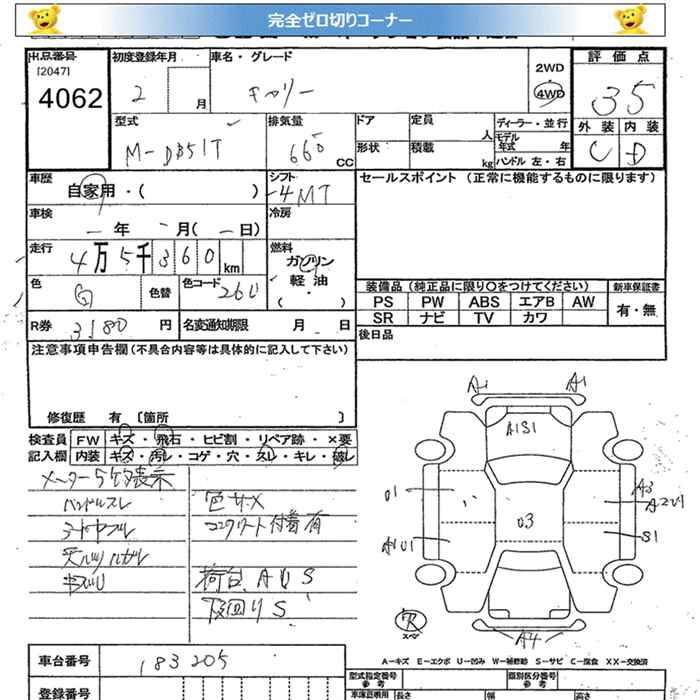 完全ゼロ切りコーナー
出品番号 初度登録年月 車名・グレード 2WD 評価点
[2047]
4062 2 月 キャリー 4WD 35
型式 排気量 ドア 定員 人 ディーラー・並行 外装 内装
モデル年式 年
M-DB51T 660 CC 形状 積載 kg ハンドル 左・右 C D
車歴 シフト セールスポイント (正常に機能するものに限ります)
自家用・( ) 4MT
車検 冷房
年 月( 日)
走行 燃料
4万5千360km ガソリン
軽油
( ・ )
色 色替 色コード 26U
装備品 (純正品に限り〇をつけてください) 新車保証書
PS PW ABS エアB AW 有・無
SR ナビ TV カワ
R券 3180 円 名変通知期限 月 日
後日品
注意事項申告欄 (不具合内容等は具体的に記入して下さい)
修復歴 有 〔箇所 〕
検査員 FW キズ・飛石・ヒビ割・リペア跡・×要
記入欄 内装 キズ・汚レ・コゲ・穴・スレ・キレ・破レ
メーター5ケタ表示
ハンドルスレ 色サメ
コンクリート付着有
天井ハガレ
荷台 A U S
下回り S
A1 A1
A1S1
U1 A3
A2U1
U3
S1
A4
A―キズ E―エクボ U―凹み W―補修跡 S―サビ C―腐食 XX―交換済
車台番号 183205
型式指定番号 参考 類別区分番号 参考
登録番号 車庫証明用 長さ 幅 高さ